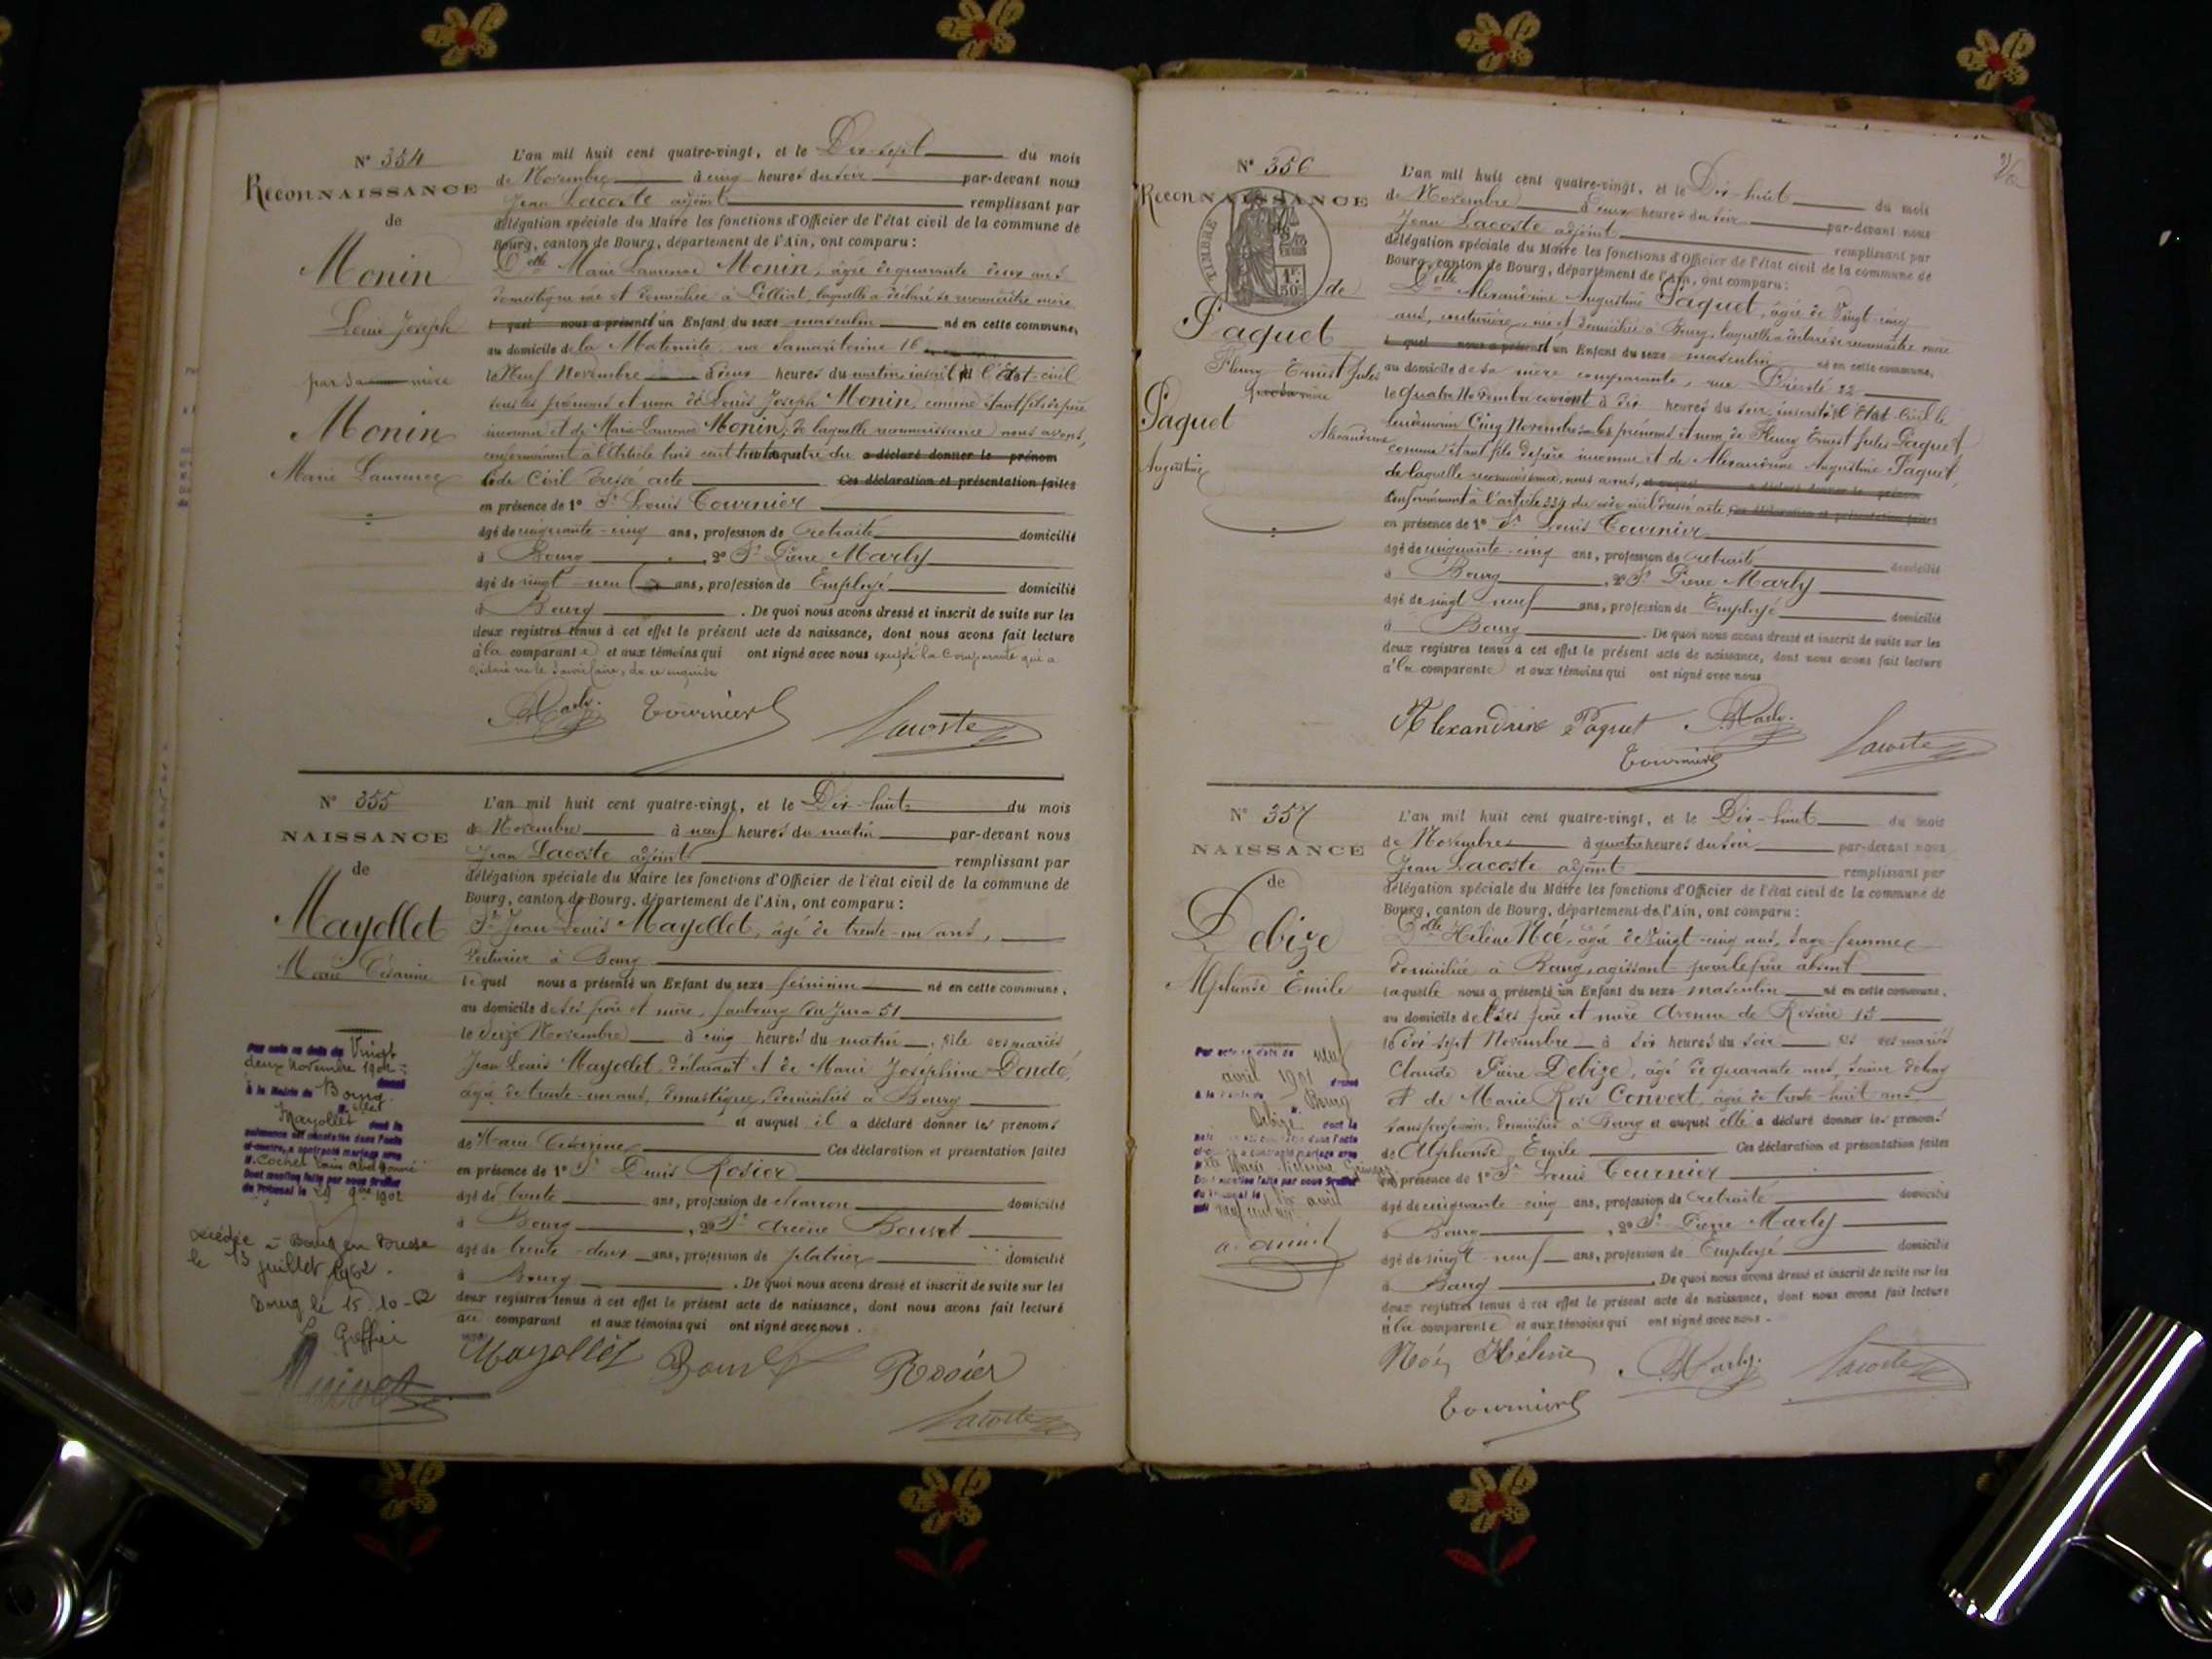 N° 354
Reconnaissance
de
Monin
Louis Joseph
par sa mère
Monin
Marie Laurence
L'an mil huit cent quatre-vingt, et le Dix-sept du mois
de Novembre à cinq heures du soir par-devant nous
Jean Lacoste adjoint remplissant par
délégation spéciale du Maire les fonctions d'Officier de l'état civil de la commune de
Bourg, canton de Bourg, département de l'Ain, ont comparu :
Delle Marie Laurence Monin, âgée de quarante deux ans
domestique née et domiciliée à Polliat, laquelle a déclaré se reconnaître mère
lequel nous a présenté un Enfant du sexe masculin né en cette commune,
au domicile de la Maternité, rue Samaritaine 16
le Neuf Novembre à deux heures du matin, inscrit à l'Etat-civil
sous les prénoms et nom de Louis Joseph Monin, comme étant fils de père
inconnu et de Marie Laurence Monin, de laquelle reconnaissance nous avons,
conformément à l'Article trois cent trente quatre du a déclaré donner le prénom
Code Civil dressé acte Ces déclaration et présentation faites
en présence de 1° Sr Louis Tournier
âgé de cinquante-cinq ans, profession de retraité domicilié
à Bourg, 2° Sr Pierre Marly
âgé de vingt-neuf ans, profession de Employé domicilié
à Bourg. De quoi nous avons dressé et inscrit de suite sur les
deux registres tenus à cet effet le présent acte de naissance, dont nous avons fait lecture
à la comparante et aux témoins qui ont signé avec nous excepté la Comparante qui a
déclaré ne le savoir faire, de ce enquise
Marly Tournier Lacoste
N° 355
NAISSANCE
de
Mayollet
Marie Césarine
L'an mil huit cent quatre-vingt, et le Dix-huit du mois
de Novembre à neuf heures du matin par-devant nous
Jean Lacoste adjoint remplissant par
délégation spéciale du Maire les fonctions d'Officier de l'état civil de la commune de
Bourg, canton de Bourg, département de l'Ain, ont comparu :
Sr Jean Louis Mayollet, âgé de trente-un ans,
Voiturier à Bourg
lequel nous a présenté un Enfant du sexe féminin né en cette commune,
au domicile de ses père et mère, faubourg du Jura 51
le Seize Novembre à cinq heures du matin, fille des mariés
Jean Louis Mayollet, déclarant et de Marie Joséphine Dondé,
âgée de trente-un ans, domestique, domiciliés à Bourg
et auquel il a déclaré donner les prénoms
de Marie Césarine Ces déclaration et présentation faites
en présence de 1° Sr Denis Rosier
âgé de trente ans, profession de charron domicilié
à Bourg, 2° Sr Arsène Bouvet
âgé de trente-deux ans, profession de plâtrier domicilié
à Bourg. De quoi nous avons dressé et inscrit de suite sur les
deux registres tenus à cet effet le présent acte de naissance, dont nous avons fait lecture
au comparant et aux témoins qui ont signé avec nous.
Par acte en date du Vingt
deux Novembre 1902
à la Mairie de Bourg
Mayollet dont la
naissance est constatée dans l'acte
ci-contre, a contracté mariage avec
M. Cochet
Dont mention faite par nous Greffier
du Tribunal le 29 9bre 1902
Décédée à Bourg en Bresse
le 13 juillet 1962.
Bourg le 15-10-62
Le Greffier
Mayollet Bouvet Rosier
Lacoste
N° 356
Reconnaissance
TIMBRE
de
Paquet
Fleury Ernest Jules
par sa mère
Paquet
Alexandrine
Augustine
L'an mil huit cent quatre-vingt, et le Dix-huit du mois
de Novembre à deux heures du soir par-devant nous
Jean Lacoste adjoint remplissant par
délégation spéciale du Maire les fonctions d'Officier de l'état civil de la commune de
Bourg, canton de Bourg, département de l'Ain, ont comparu :
Delle Alexandrine Augustine Paquet, âgée de Vingt-cinq
ans, couturière, née et domiciliée à Bourg, laquelle a déclaré se reconnaître mère
lequel nous a présenté un Enfant du sexe masculin né en cette commune,
au domicile de sa mère comparante, rue 22
le quatre Novembre courant à dix heures du soir, inscrit à l'Etat Civil le
lendemain Cinq Novembre sous les prénoms et nom de Fleury Ernest Jules Paquet,
comme étant fils de père inconnu et de Alexandrine Augustine Paquet,
de laquelle reconnaissance, nous avons, et auquel a déclaré donner le prénom
conformément à l'article 334 du code civil dressé acte Ces déclaration et présentation faites
en présence de 1° Sr Louis Tournier
âgé de cinquante-cinq ans, profession de retraité domicilié
à Bourg, 2° Sr Pierre Marly
âgé de vingt-neuf ans, profession de Employé domicilié
à Bourg. De quoi nous avons dressé et inscrit de suite sur les
deux registres tenus à cet effet le présent acte de naissance, dont nous avons fait lecture
à la comparante et aux témoins qui ont signé avec nous
Alexandrine Paquet Marly
Tournier Lacoste
N° 357
NAISSANCE
de
Debize
Alphonse Emile
L'an mil huit cent quatre-vingt, et le Dix-huit du mois
de Novembre à quatre heures du soir par-devant nous
Jean Lacoste adjoint remplissant par
délégation spéciale du Maire les fonctions d'Officier de l'état civil de la commune de
Bourg, canton de Bourg, département de l'Ain, ont comparu :
Delle Hélène Noé, âgée de Vingt-cinq ans, sage-femme
domiciliée à Bourg, agissant pour le père absent
laquelle nous a présenté un Enfant du sexe masculin né en cette commune,
au domicile de ses père et mère Avenue de Rosière 15
le dix-sept Novembre à dix heures du soir, fils des mariés
Claude Pierre Debize, âgé de quarante ans, scieur de long
et de Marie Rose Convert, âgée de trente-huit ans
sans profession, domiciliés à Bourg et auquel elle a déclaré donner les prénoms
de Alphonse Emile Ces déclaration et présentation faites
en présence de 1° Sr Louis Tournier
âgé de cinquante-cinq ans, profession de retraité domicilié
à Bourg, 2° Sr Pierre Marly
âgé de vingt-neuf ans, profession de Employé domicilié
à Bourg. De quoi nous avons dressé et inscrit de suite sur les
deux registres tenus à cet effet le présent acte de naissance, dont nous avons fait lecture
à la comparante et aux témoins qui ont signé avec nous.
Par acte en date du neuf
avril 1901
à la Mairie de Bourg
Debize dont la
ci-contre a contracté mariage avec
Dont mention faite par nous Greffier
du Tribunal le dix avril
Noé Hélène Marly Lacoste
Tournier